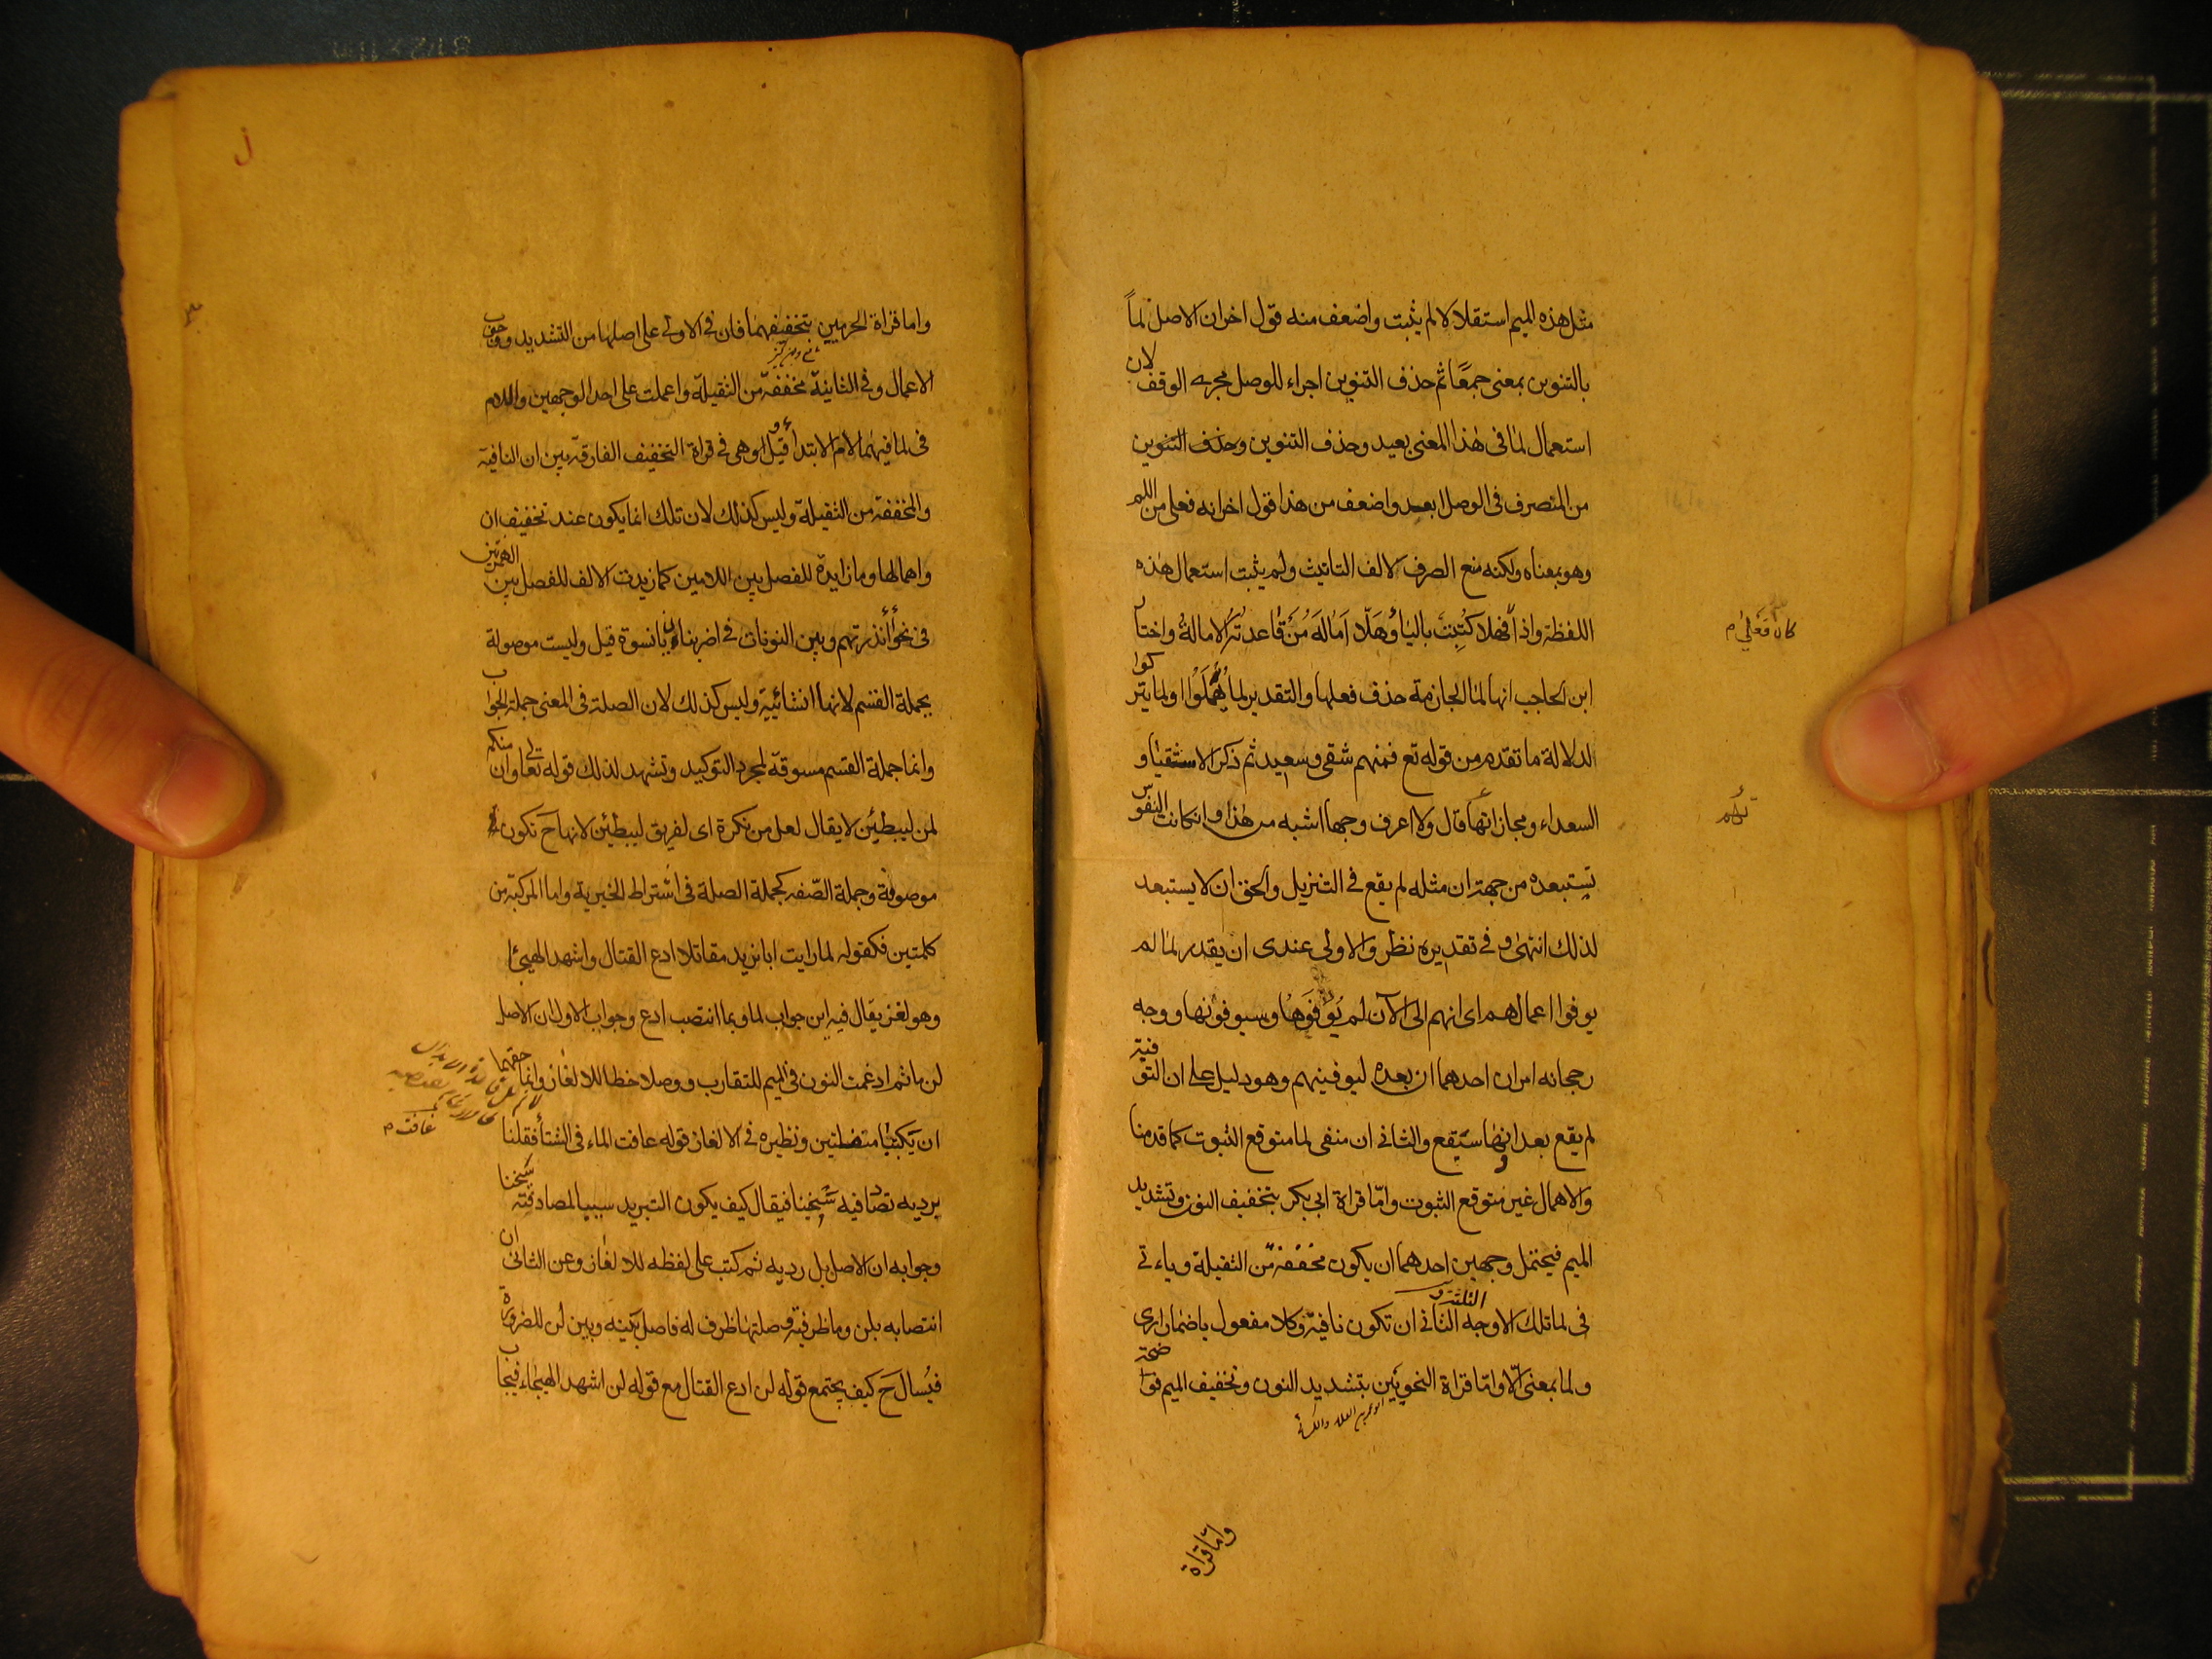 مثل هذه الميم استقلالا لم يثبت واضعف منه قول اخر ان الاصل لماً
بالتنوين بمعنى جمعًا ثم حذف التنوين اجراء للوصل مجرى الوقف لان
استعمال لما فى هذا المعنى بعيد وحذف التنوين وحذف التنوين
من المنصرف فى الوصل ابعد واضعف من هذا قول اخر انه فعلى من اللم
وهو بمعناه ولكنه منع الصرف لالف التانيث ولم يثبت استعمال هذه
اللفظة واذا فهلا كتبت باليا وهلّا اماله من قاعدته الامالة واختار
كان فعلى م
ابن الحاجب انها لما الجازمة حذف فعلها والتقدير لما يهملوا ولما يتركوا
الدلالة ما تقدم من قوله تع فمنهم شقى وسعيد ثم ذكر الاشقيا و
السعداء ومجازاتها قال ولا اعرف وجها اشبه من هذا وان كانت النفوس
تهم
تستبعده من جهة ان مثله لم يقع فى التنزيل والحق ان لا يستبعد
لذلك انتهى وفى تقديره نظر والاولى عندى ان يقدر لما لم
يوفوا اعمالهم اى انهم الى الآن لم يوفوها وسيوفونها ووجه
رجحانه امران احدهما ان بعده ليوفينهم وهو دليل على ان التوفية
لم يقع بعد انها ستقع والثانى ان منفى لما متوقع الثبوت كما قدمنا
والاهمال غير متوقع الثبوت وامّا قراة ابى بكر بتخفيف النون وتشديد
الميم فيحتمل وجهين احدهما ان يكون مخففة من الثقيلة وياءتى
فى لما تلك الاوجه الثلثة و الثانى ان تكون نافية وكلا مفعول باضمار ارى
ولما بمعنى الّا وامّا قراة النحويّين بتشديد النون وتخفيف الميم فواضحة
ابو عمرو بن العلاء والكسائى
وامّا قراة
واما قراة الحرميين بتخفيفهما فان فى الاولى على اصلها من التشديد ووجوب
الاعمال وفى الثانية مخففة من الثقيلة واعملت على احد الوجهين واللام
فى لما فيهما لام الابتداء قيل او هى فى قراة التخفيف الفارقة بين ان النافية
والمخففة من الثقيلة وليس كذلك لان تلك انما يكون عند تخفيف ان
واهمالها وما زايدة للفصل بين اللامين كما زيدت الالف للفصل بين الهمزتين
فى نحو أأنذرتهم وبين النونات فى اضربنان يا نسوة قيل وليست موصولة
بجملة القسم لانها انشائية وليس كذلك لان الصلة فى المعنى جملة الجواب
وانما جملة القسم مسوقة لمجرد التوكيد وتشهد لذلك قوله تعالى وان منكم
لمن ليبطئن لا يقال لعل من نكرة اى لفريق ليبطئن لانها ح تكون
موصوفة وجملة الصفه كجملة الصلة فى اشتراط الخبرية واما المركبة من
كلمتين فكقوله لما رايت ابا يزيد مقاتلا ادع القتال واشهد الهيجا
وهو لغز يقال فيه اين جواب لما وبما انتصب ادع وجواب الاول ان الاصل
لن ما ثم ادغمت النون فى الميم للتقارب ووصلا خطا للالغاز وانما حقهما
ان يكتبا منفصلتين ونظيره فى الالغاز قوله عافت الماء فى الشتاء فقلنا
عافت م
برديه تصادفيه سخينا فيقال كيف يكون التبريد سببا لمصادفته سخينا
وجوابه ان الاصل بل رديه ثم كتب على لفظه للالغاز وعن الثانى ان
انتصابه بلن وما ظرفية وصلتها ظرف له فاصل بينه وبين لن للضرورة
فيسال ح كيف يجتمع قوله لن ادع القتال مع قوله لن اشهد الهيجاء فيجاب